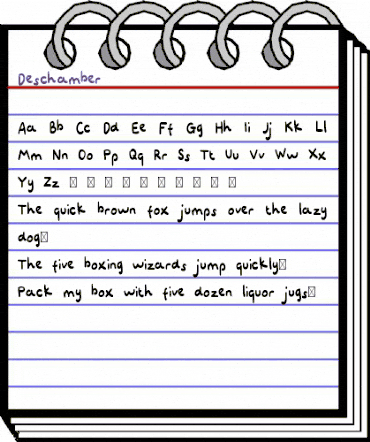 Deschamber
Aa Bb Cc Dd Ee Ff Gg Hh Ii Jj Kk Ll
Mm Nn Oo Pp Qq Rr Ss Tt Uu Vv Ww Xx
Yy Zz □ □ □ □ □ □ □ □ □ □
The quick brown fox jumps over the lazy
dog□
The five boxing wizards jump quickly□
Pack my box with five dozen liquor jugs□